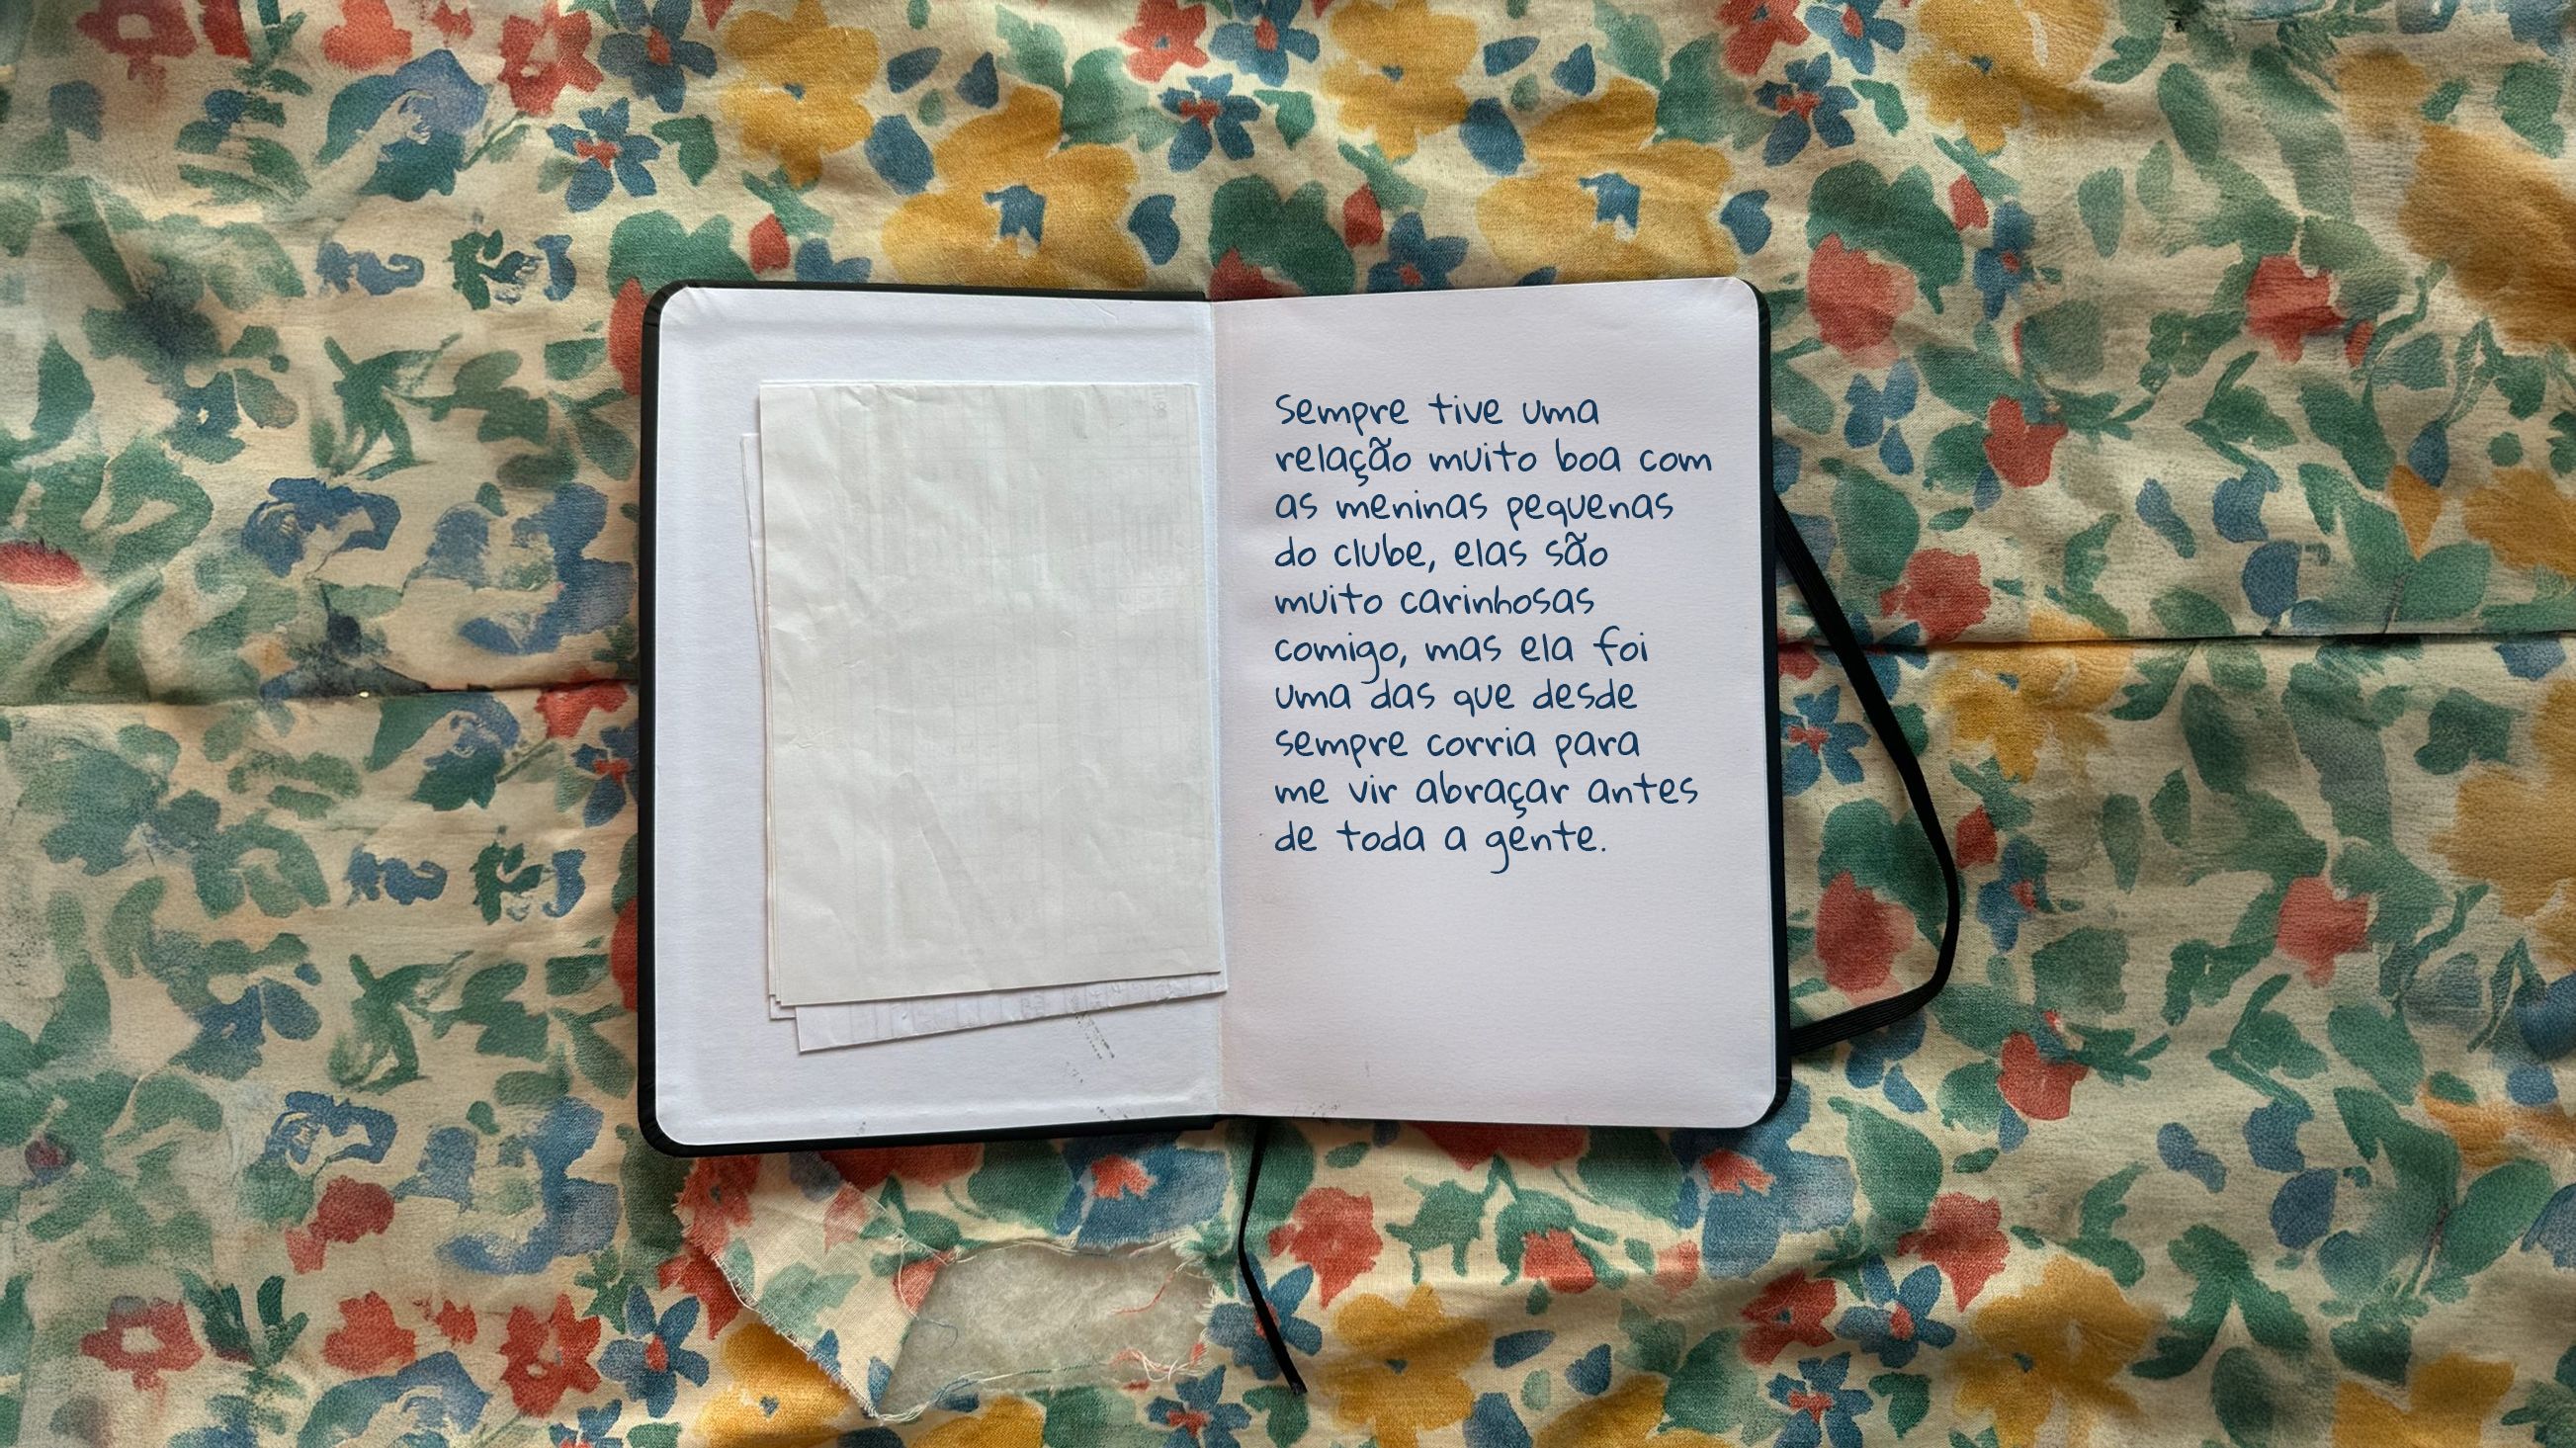 Sempre tive uma
relação muito boa com
as meninas pequenas
do clube, elas são
muito carinhosas
comigo, mas ela foi
uma das que desde
sempre corria para
me vir abraçar antes
de toda a gente.